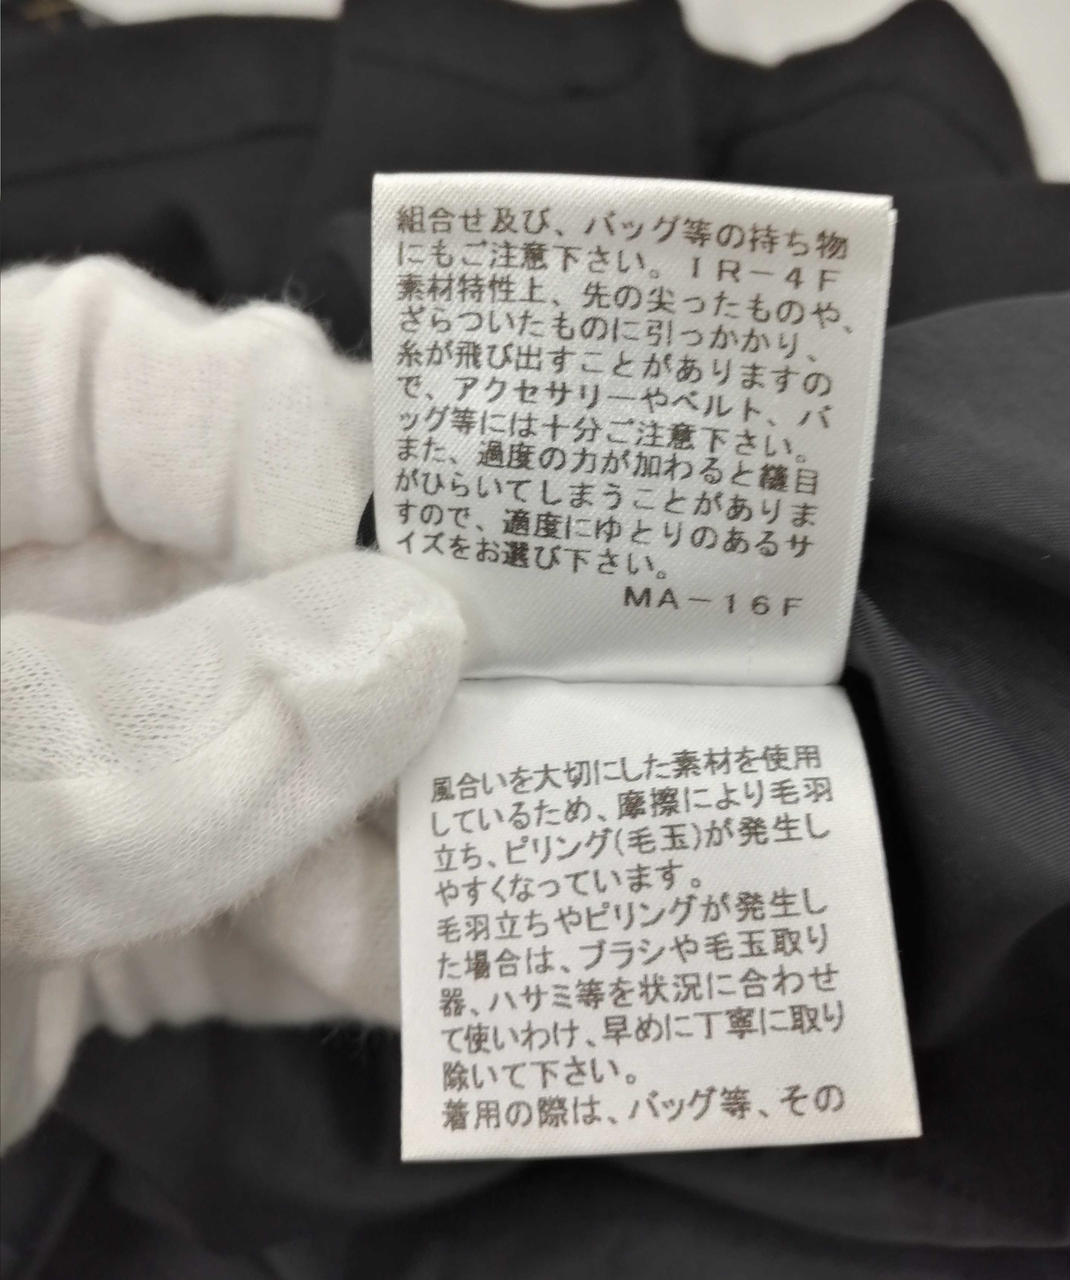 組合せ及び、バッグ等の持ち物
にもご注意下さい。ＩＲ－４Ｆ
素材特性上、先の尖ったものや、
ざらついたものに引っかかり、
糸が飛び出すことがありますの
で、アクセサリーやベルト、バ
ッグ等には十分ご注意下さい。
また、過度の力が加わると縫目
がひらいてしまうことがありま
すので、適度にゆとりのあるサ
イズをお選び下さい。
ＭＡ－１６Ｆ
風合いを大切にした素材を使用
しているため、摩擦により毛羽
立ち、ピリング(毛玉)が発生し
やすくなっています。
毛羽立ちやピリングが発生し
た場合は、ブラシや毛玉取り
器、ハサミ等を状況に合わせ
て使いわけ、早めに丁寧に取り
除いて下さい。
着用の際は、バッグ等、その